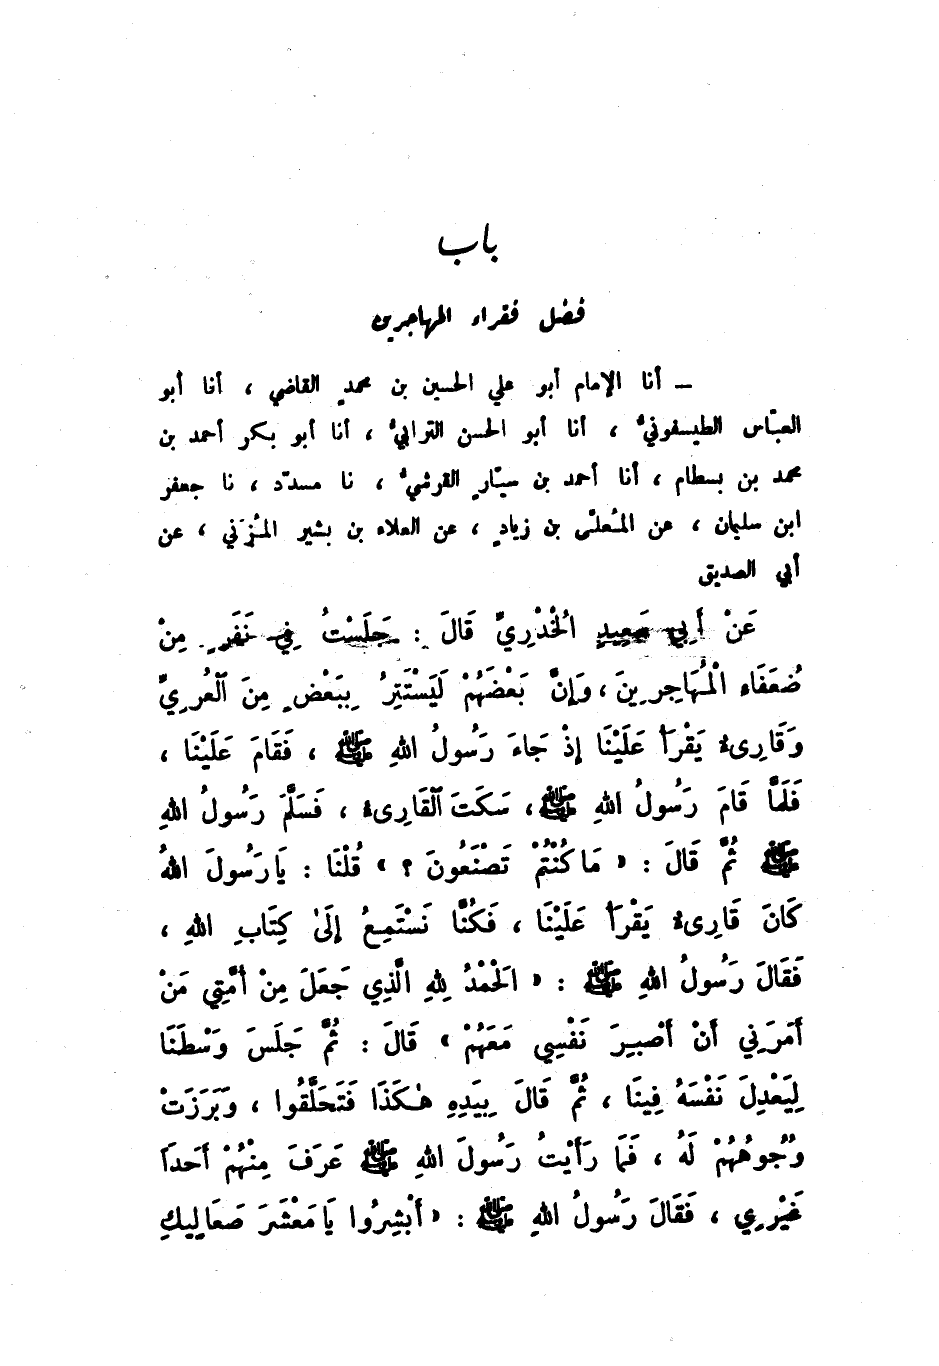 باب
فضل فقراء المهاجرين
ــ أنا الإمام أبو علي الحسين بن محمدٍ القاضي ، أنا أبو
العبّاس الطيسفونيُّ ، أنا أبو الحسن الترابيُّ ، أنا أبو بكر أحمد بن
محمد بن بسطام ، أنا أحمد بن سيّارٍ القرشيُّ ، نا مسدّد ، نا جعفر
ابن سليمان ، عن المُعلّى بن زيادٍ ، عن العلاء بن بشير المُزَني ، عن
أبي الصديق
عَنْ أَبِي سَعِيدٍ الْخُدْرِيِّ قَالَ : جَلَسْتُ فِي نَفَرٍ مِنْ
ضُعَفَاءِ الْمُهَاجِرِينَ ، وَإِنَّ بَعْضَهُمْ لَيَسْتَتِرُ بِبَعْضٍ مِنَ الْعُرِيِّ
وَقَارِئٌ يَقْرَأُ عَلَيْنَا إِذْ جَاءَ رَسُولُ اللهِ ﷺ ، فَقَامَ عَلَيْنَا ،
فَلَمَّا قَامَ رَسُولُ اللهِ ﷺ ، سَكَتَ الْقَارِئُ ، فَسَلَّمَ رَسُولُ اللهِ
ﷺ ثُمَّ قَالَ : « مَا كُنْتُمْ تَصْنَعُونَ ؟ » قُلْنَا : يَا رَسُولَ اللهُ
كَانَ قَارِئٌ يَقْرَأُ عَلَيْنَا ، فَكُنَّا نَسْتَمِعُ إِلَىٰ كِتَابِ اللهِ ،
فَقَالَ رَسُولُ اللهِ ﷺ : « الْحَمْدُ لِلهِ الَّذِي جَعَلَ مِنْ أُمَّتِي مَنْ
أَمَرَنِي أَنْ أَصْبِرَ نَفْسِي مَعَهُمْ » قَالَ : ثُمَّ جَلَسَ وَسْطَنَا
لِيَعْدِلَ نَفْسَهُ فِينَا ، ثُمَّ قَالَ بِيَدِهِ هٰكَذَا فَتَحَلَّقُوا ، وَبَرَزَتْ
وُجُوهُهُمْ لَهُ ، فَمَا رَأَيْتُ رَسُولَ اللهِ ﷺ عَرَفَ مِنْهُمْ أَحَداً
غَيْرِي ، فَقَالَ رَسُولُ اللهِ ﷺ : « أَبْشِرُوا يَا مَعْشَرَ صَعَالِيكِ